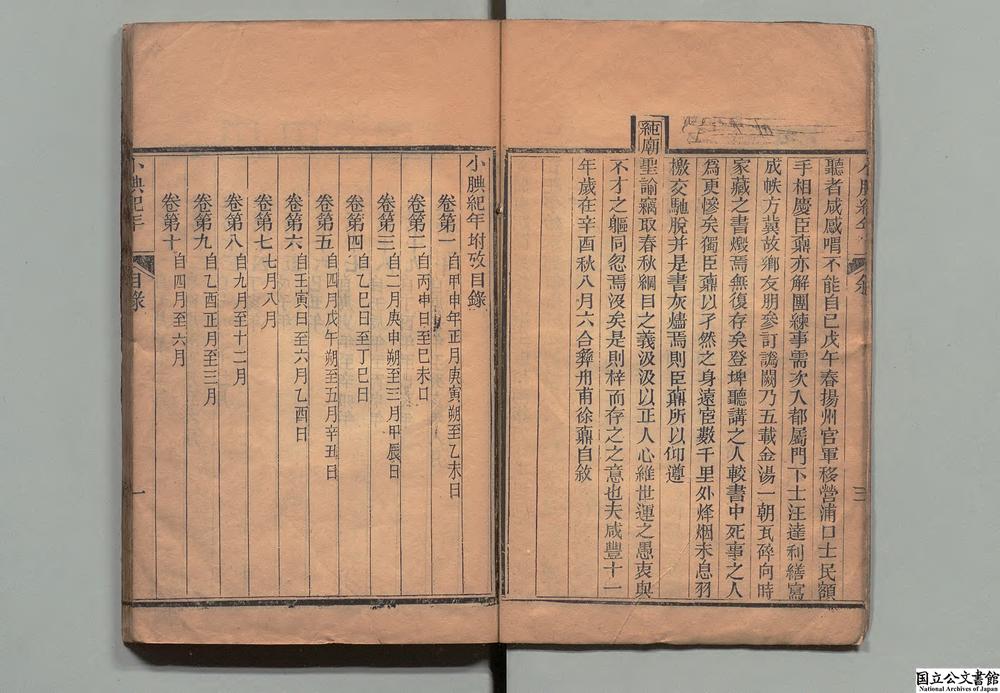 聽者咸感唱不能自已戊午春揚州官軍移營浦口士民額
手相慶臣鼒亦解團練事需次入都屬門下士汪達利繕寫
成帙方冀故鄉友朋參訂譌闕乃五載金湯一朝瓦碎向時
家藏之書燬焉無復存矣登埤聽講之人較書中死事之人
爲更慘矣獨臣鼒以孑然之身遠宦數千里外烽烟未息羽
檄交馳脫并是書灰燼焉則臣鼒所以仰遵
純廟
聖諭竊取春秋綱目之義汲汲以正人心維世運之愚衷與
不才之軀同忽焉汲矣是則梓而存之之意也夫咸豐十一
年歲在辛酉秋八月六合彝舟甫徐鼒自敘
三
小腆紀年坿攷目錄
卷第一 自甲申年正月庚寅朔至乙未日
卷第二 自丙申日至己未日
卷第三 自二月庚申朔至三月甲辰日
卷第四 自乙巳日至丁巳日
卷第五 自四月戊午朔至五月辛丑日
卷第六 自壬寅日至六月乙酉日
卷第七 七月八月
卷第八 自九月至十二月
卷第九 自乙酉正月至三月
卷第十 自四月至六月
小腆紀年 目錄 一
国立公文書館
National Archives of Japan